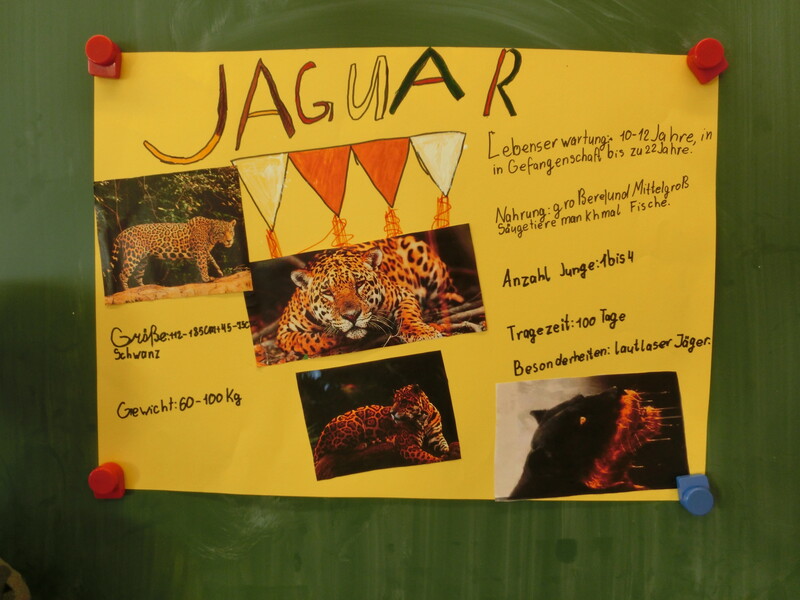 JAGUAR
Lebenserwartung: 10-12 Jahre, in
in Gefangenschaft bis zu 22 Jahre.
Nahrung: großere und Mittelgroß
Säugetiere mankhmal Fische.
Anzahl Junge: 1 bis 4
Tragezeit: 100 Tage
Besonderheiten: lautlaser Jäger.
Größe: 112-185cm+45-
Schwanz
Gewicht: 60-100 Kg